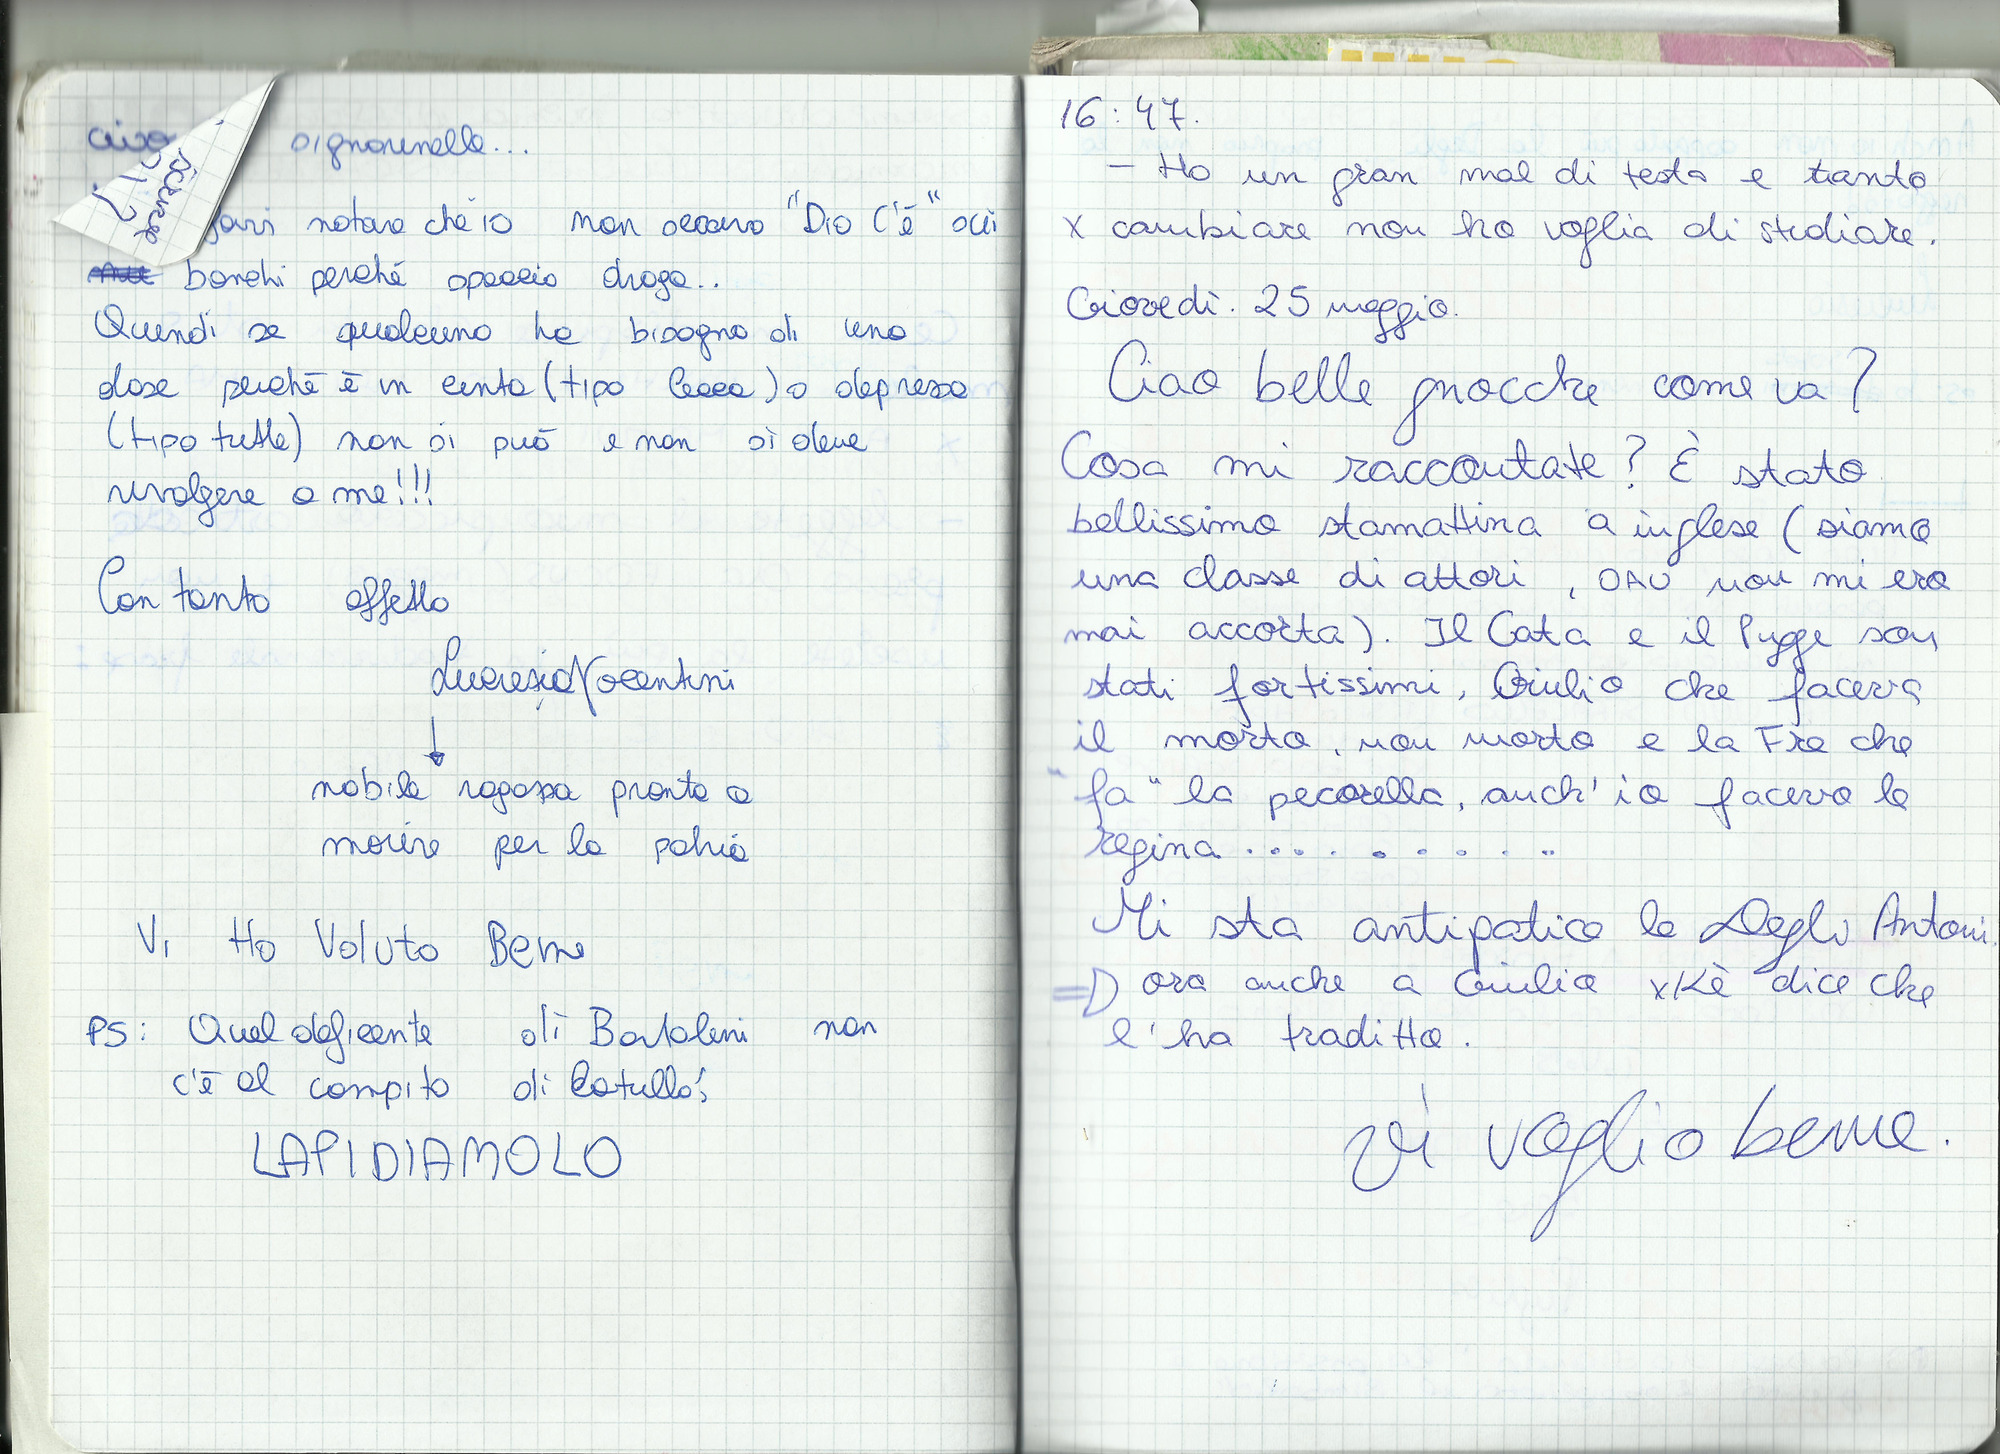 signorinelle...
farvi notare che io non scrivo "Dio C'è" sui
banchi perché spaccio droga..
Quindi se qualcuno ha bisogno di una
dose perché è in cinta (tipo Cecca) o depressa
(tipo tutte) non si può e non si deve
rivolgere a me!!!
Con tanto affetto
Lucrezia Nocentini
nobile ragazza pronta a
morire per la patria
Vi Ho Voluto Bene
PS: Quel deficente di Bartolini non
c'è al compito di Catullo!
LAPIDIAMOLO
16:47.
– Ho un gran mal di testa e tianto
x cambiare non ho voglia di studiare.
Giovedì. 25 maggio.
Ciao belle gnocche come va?
Cosa mi raccontate? È stato
bellissimo stamattina a inglese (siamo
una classe di attori, OAU non mi ero
mai accorta). Il Cata e il Pugge son
stati fortissimi, Giulio che faceva
il morto, non morto e la Fra che
"fa" la pecorella, anch'io facevo la
regina..........
Mi sta antipatica la Degli Antoni.
=D ora anche a Giulia xKè dice che
l'ha traditta.
Vi voglio bene.